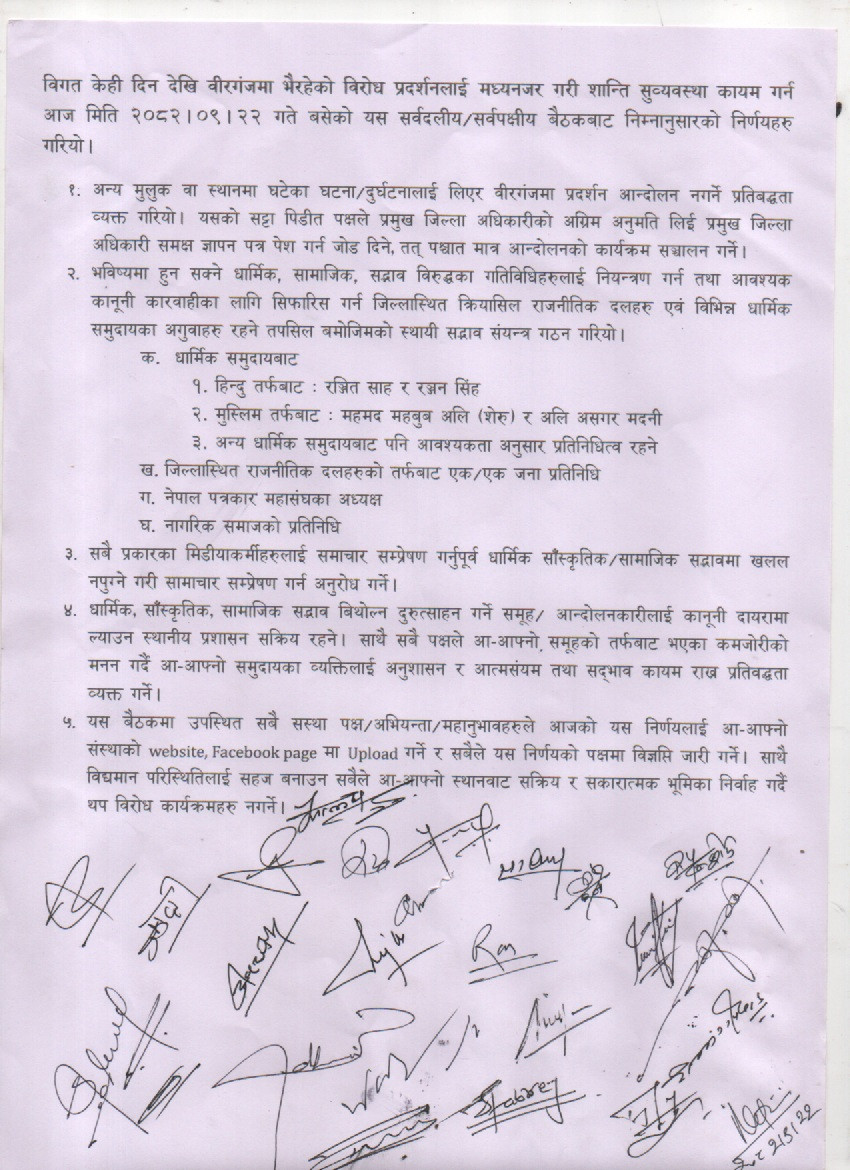 विगत केही दिन देखि वीरगंजमा भैरहेको विरोध प्रदर्शनलाई मध्यनजर गरी शान्ति सुव्यवस्था कायम गर्न
आज मिति २०८२।०९।२२ गते बसेको यस सर्वदलीय/सर्वपक्षीय बैठकबाट निम्नानुसारको निर्णयहरु
गरियो।
१. अन्य मुलुक वा स्थानमा घटेका घटना/दुर्घटनालाई लिएर वीरगंजमा प्रदर्शन आन्दोलन नगर्ने प्रतिबद्धता
व्यक्त गरियो। यसको सट्टा पिडीत पक्षले प्रमुख जिल्ला अधिकारीको अग्रिम अनुमति लिई प्रमुख जिल्ला
अधिकारी समक्ष ज्ञापन पत्र पेश गर्न जोड दिने, तत् पश्चात मात्र आन्दोलनको कार्यक्रम सञ्चालन गर्ने।
२. भविष्यमा हुन सक्ने धार्मिक, सामाजिक, सद्भाव विरुद्धका गतिविधिहरुलाई नियन्त्रण गर्न तथा आवश्यक
कानूनी कारवाहीका लागि सिफारिस गर्न जिल्लास्थित क्रियासिल राजनीतिक दलहरु एवं विभिन्न धार्मिक
समुदायका अगुवाहरु रहने तपसिल बमोजिमको स्थायी सद्भाव संयन्त्र गठन गरियो।
क. धार्मिक समुदायबाट
१. हिन्दु तर्फबाट : रञ्जित साह र रञ्जन सिंह
२. मुस्लिम तर्फबाट : महमद महबुब अलि (शेरु) र अलि असगर मदनी
३. अन्य धार्मिक समुदायबाट पनि आवश्यकता अनुसार प्रतिनिधित्व रहने
ख. जिल्लास्थित राजनीतिक दलहरुको तर्फबाट एक/एक जना प्रतिनिधि
ग. नेपाल पत्रकार महासंघका अध्यक्ष
घ. नागरिक समाजको प्रतिनिधि
३. सबै प्रकारका मिडीयाकर्मीहरुलाई समाचार सम्प्रेषण गर्नुपूर्व धार्मिक साँस्कृतिक/सामाजिक सद्भावमा खलल
नपुग्ने गरी सामाचार सम्प्रेषण गर्न अनुरोध गर्ने।
४. धार्मिक, साँस्कृतिक, सामाजिक सद्भाव बिथोल्न दुरुत्साहन गर्ने समूह/ आन्दोलनकारीलाई कानूनी दायरामा
ल्याउन स्थानीय प्रशासन सक्रिय रहने। साथै सबै पक्षले आ-आफ्नो समूहको तर्फबाट भएका कमजोरीको
मनन गर्दै आ-आफ्नो समुदायका व्यक्तिलाई अनुशासन र आत्मसंयम तथा सद्‌भाव कायम राख्न प्रतिवद्धता
व्यक्त गर्ने।
५. यस बैठकमा उपस्थित सबै सस्था पक्ष/अभियन्ता/महानुभावहरुले आजको यस निर्णयलाई आ-आफ्नो
संस्थाको website, Facebook page मा Upload गर्ने र सबैले यस निर्णयको पक्षमा विज्ञप्ति जारी गर्ने। साथै
विद्यमान परिस्थितिलाई सहज बनाउन सबैले आ-आफ्नो स्थानवाट सक्रिय र सकारात्मक भूमिका निर्वाह गर्दै
थप विरोध कार्यक्रमहरु नगर्ने।